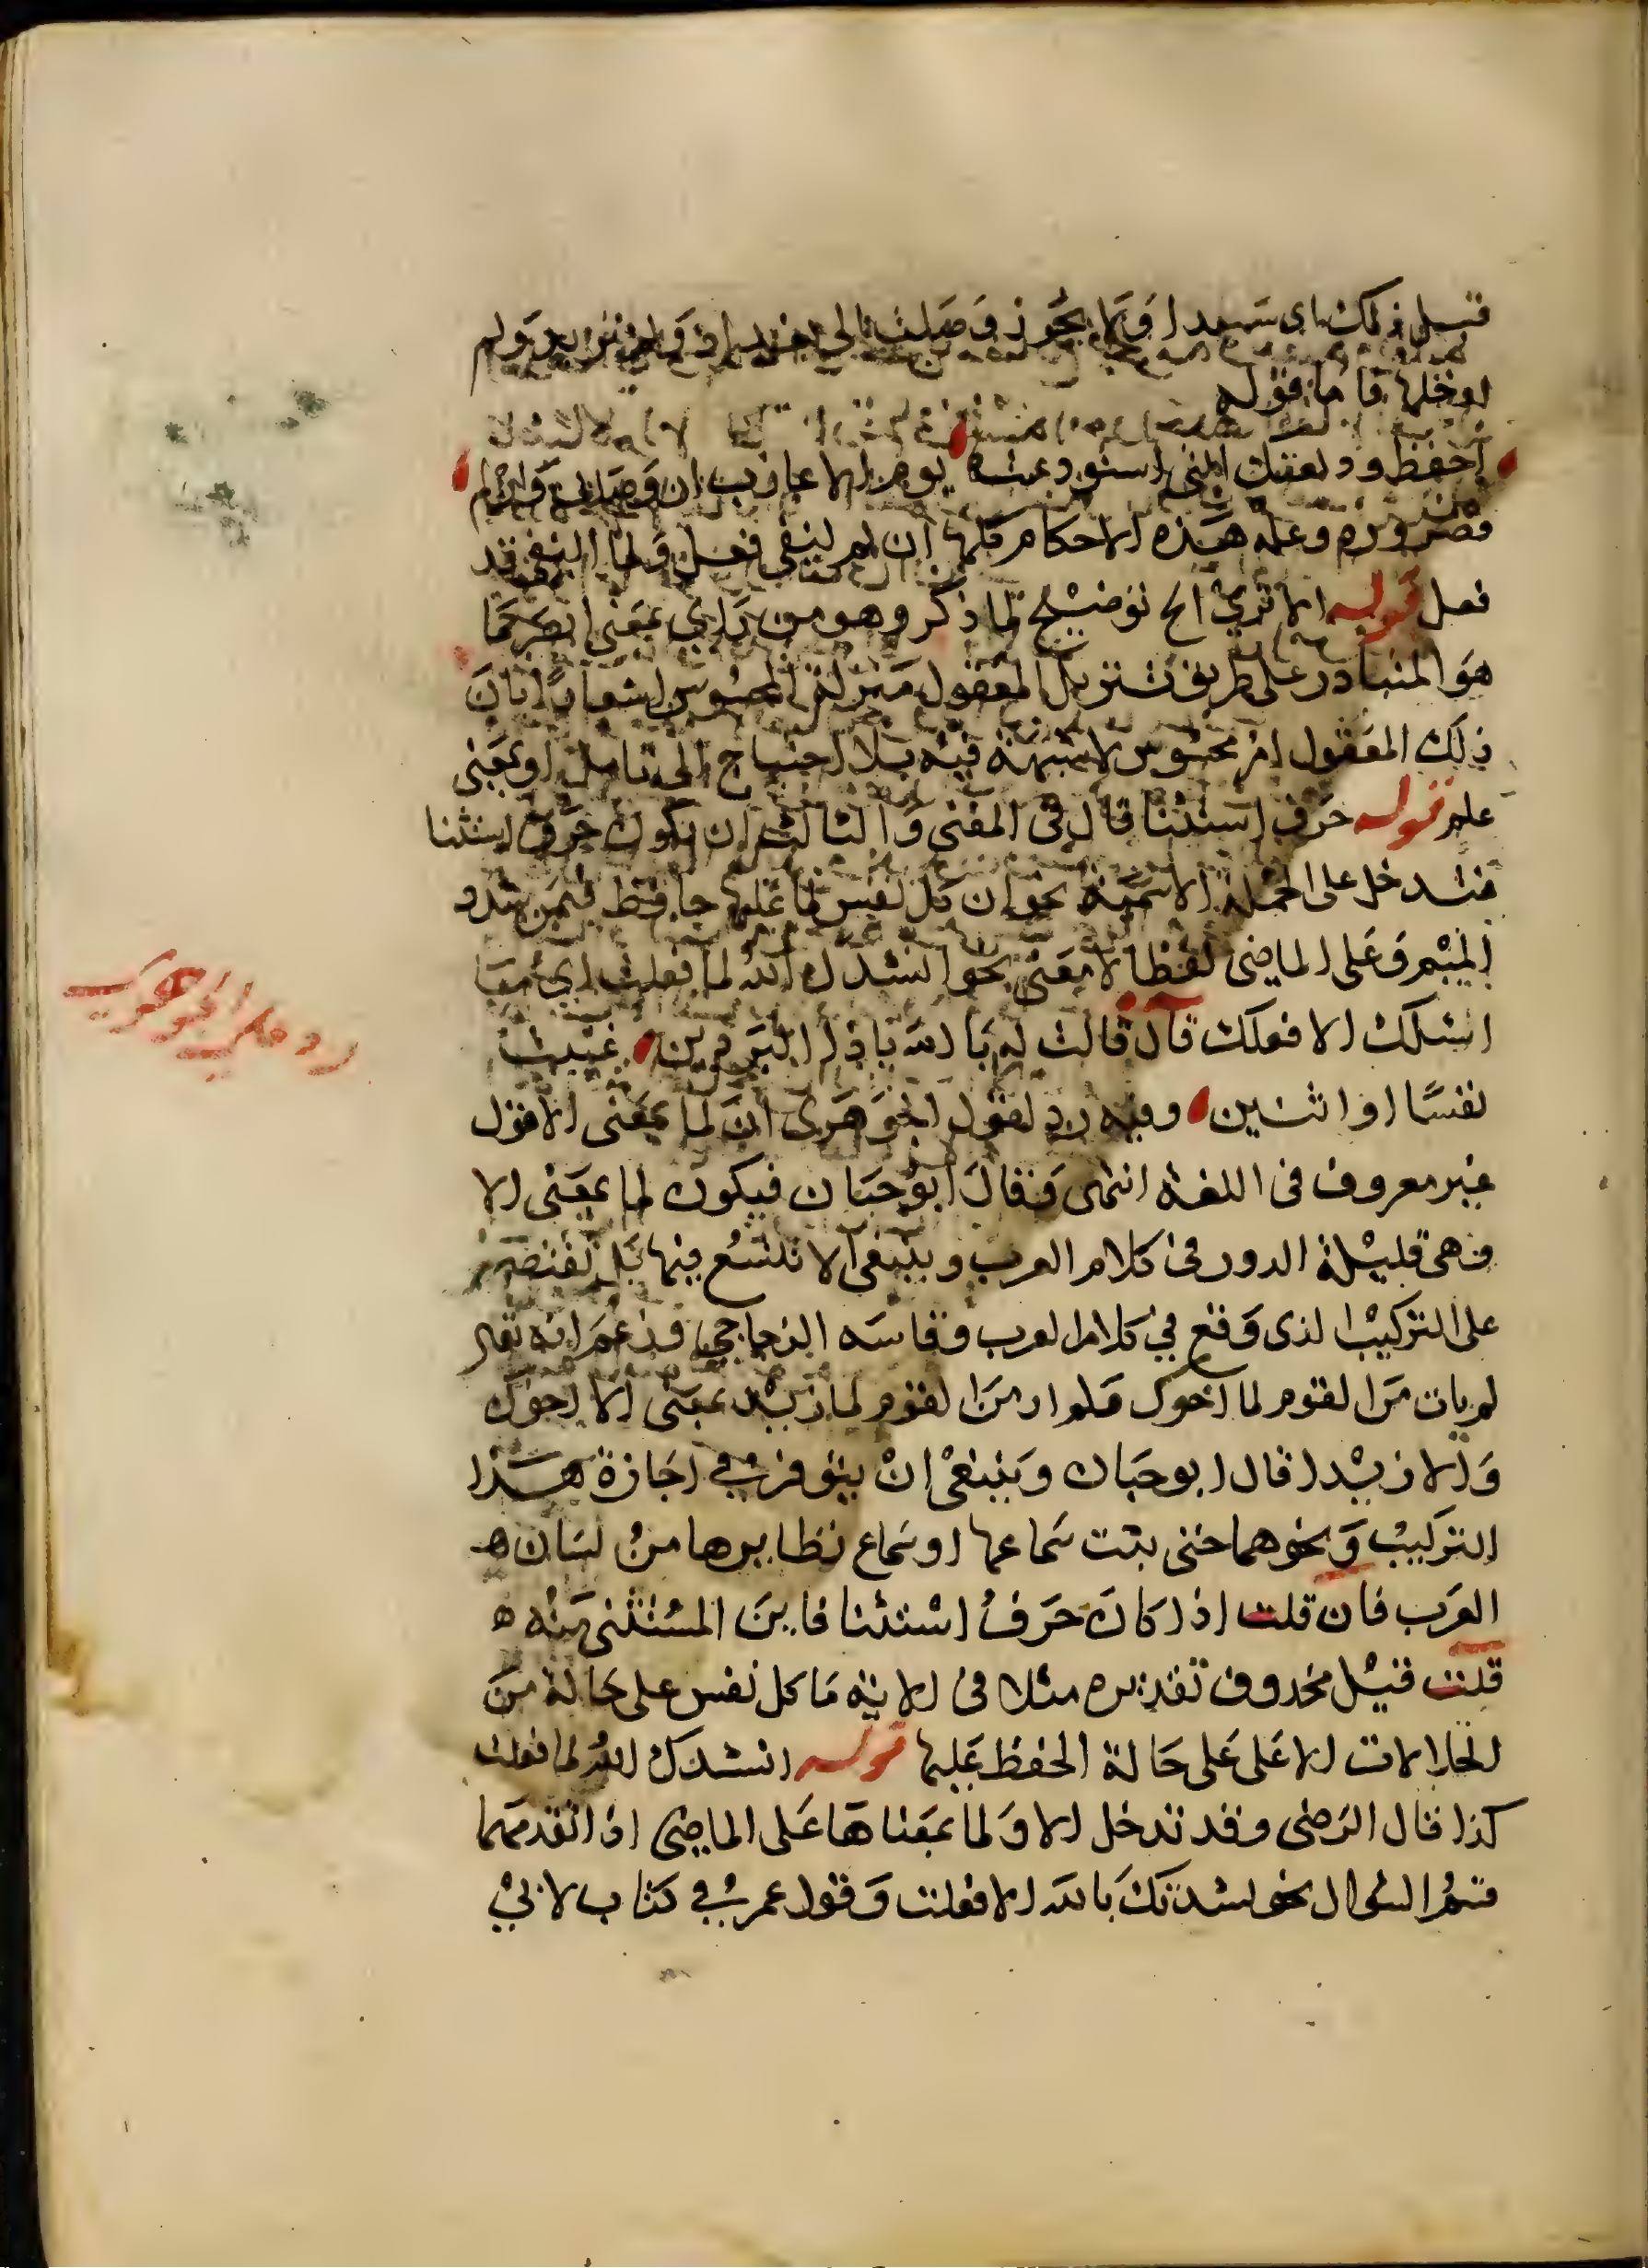 قبل ذلك اى سيدا ولا يجوز وصلت الى بغداد ولم تريد ولم
ادخلها فاما قوله
احفظ وديعتك التى استودعتها يوم الاعازب ان وصلت وان لم
فضرورة وعلة هذه الاحكام كلها ان لم لنفى فعل ولما لنفى قد
فعل قوله الا ترى الخ توضيح لما ذكر وهو من راى بمعنى ابصر كما
هو المتبادر على طريق تنزيل المعقول منزلة المحسوس اشعارا بان
ذلك المعقول امر محسوس لا شبهة فيه بلا احتياج الى تامل او بمعنى
علم قوله حرف استثنا قال فى المغنى والثالث ان تكون حرف استثنا
فتدخل على الجملة الاسمية نحو ان كل نفس لما عليها حافظ فيمن شدد
الميم وعلى الماضى لفظا لا معنى نحو انشدك الله لما فعلت اى ما
اسئلك الا فعلك قال قالت له بالله ياذا البردين غنيت
نفسا او اثنين وفيه رد لقول الجوهرى ان لما بمعنى الا قول
غير معروف فى اللغة انتهى وقال ابو حيان فيكون لما بمعنى الا
وهى قليلة الدور فى كلام العرب وينبغى الا تتسع فيها بل تقتصر
على التركيب الذى وقع فى كلام العرب وقاسه الزجاجى وزعم انه تقول
لم يات من القوم لما اخوك ولم ار من القوم لما زيدا بمعنى الا اخوك
والا زيدا قال ابو حيان وينبغى ان يتوقف فى اجازة هذا
التركيب ونحوهما حتى يثبت سماعها او سماع نظايرها من لسان ه
العرب فان قلت اذا كان حرف استثنا فاين المستثنى منه ه
قلت قيل محذوف تقديره مثلا فى الاية ما كل نفس على حالة من
الحالات الا على على حالة الحفظ عليها قوله انشدك الله لما فعلت
كذا قال الرضى وقد تدخل الا ولما بمعناها على الماضى اذا تقدمهما
قسم السوال نحو نشدتك بالله الا فعلت وقول عمر فى كتاب لابى
رد على الجوهرى